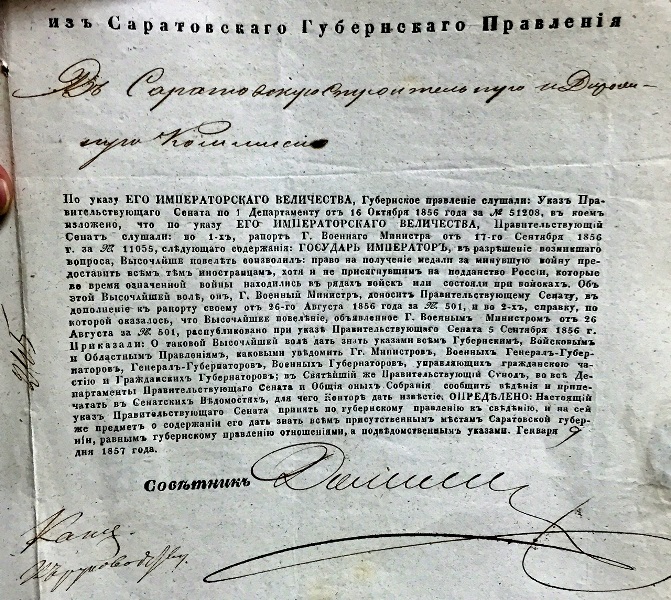 изъ Саратовскаго Губернскаго Правленія
Въ Саратовскую строительную и Дорож-
ную Коммисію
По указу ЕГО ИМПЕРАТОРСКАГО ВЕЛИЧЕСТВА, Губернское правленіе слушали: Указъ Пра-
вительствующаго Сената по 1 Департаменту отъ 16 Октября 1856 года за № 51208, въ коем
изложено, что по указу ЕГО ИМПЕРАТОРСКАГО ВЕЛИЧЕСТВА, Правительствующій
Сенатъ слушали: во 1-хъ, рапортъ Г. Военнаго Министра отъ 17-го Сентября 1856
г. за № 11055, слѣдующаго содержанія: ГОСУДАРЬ ИМПЕРАТОРЪ, въ разрѣшеніе возникшаго
вопроса, Высочайше повелѣть соизволилъ: право на полученіе медали за минувшую войну пре-
доставить всѣмъ тѣмъ иностранцамъ, хотя и не присягнувшимъ на подданство Россіи, которые
во время означенной войны находились въ рядахъ войскъ или состояли при войскахъ. Объ
этой Высочайшей волѣ, онъ, Г. Военный Министръ, доноситъ Правительствующему Сенату, въ
дополненіе къ рапорту своему отъ 26-го Августа 1856 года за № 501, и во 2-хъ, справку, по
которой оказалось, что Высочайшее повелѣніе, объявленное Г. Военнымъ Министромъ отъ 26
Августа за № 501, распубликовано при указѣ Правительствующаго Сената 5 Сентября 1856 г.
Приказали: О таковой Высочайшей волѣ дать знать указами всѣмъ Губернскимъ, Войсковымъ
и Областнымъ Правленіямъ, каковыми увѣдомить Гг. Министровъ, Военныхъ Генералъ-Губер-
наторовъ, Генералъ-Губернаторовъ, Военныхъ Губернаторовъ, управляющихъ гражданскою ча-
стію и Гражданскихъ Губернаторовъ; въ Святѣйшій же Правительствующій Сѵнодъ, во всѣ Де-
партаменты Правительствующаго Сената и Общія оныхъ Собранія сообщить вѣденія и припе-
чатать въ Сенатскихъ Вѣдомостяхъ, для чего Конторѣ дать извѣстіе. ОПРЕДѢЛЕНО: Настоящій
указъ Правительствующаго Сената принять по губернскому правленію къ свѣденію, и на сей
же предметъ о содержаніи его дать знать всѣмъ присутственнымъ мѣстамъ Саратовской губер-
ніи, равнымъ губернскому правленію отношеніями, а подвѣдомственнымъ указами. Генваря 9
дня 1857 года.
Совѣтникъ
245